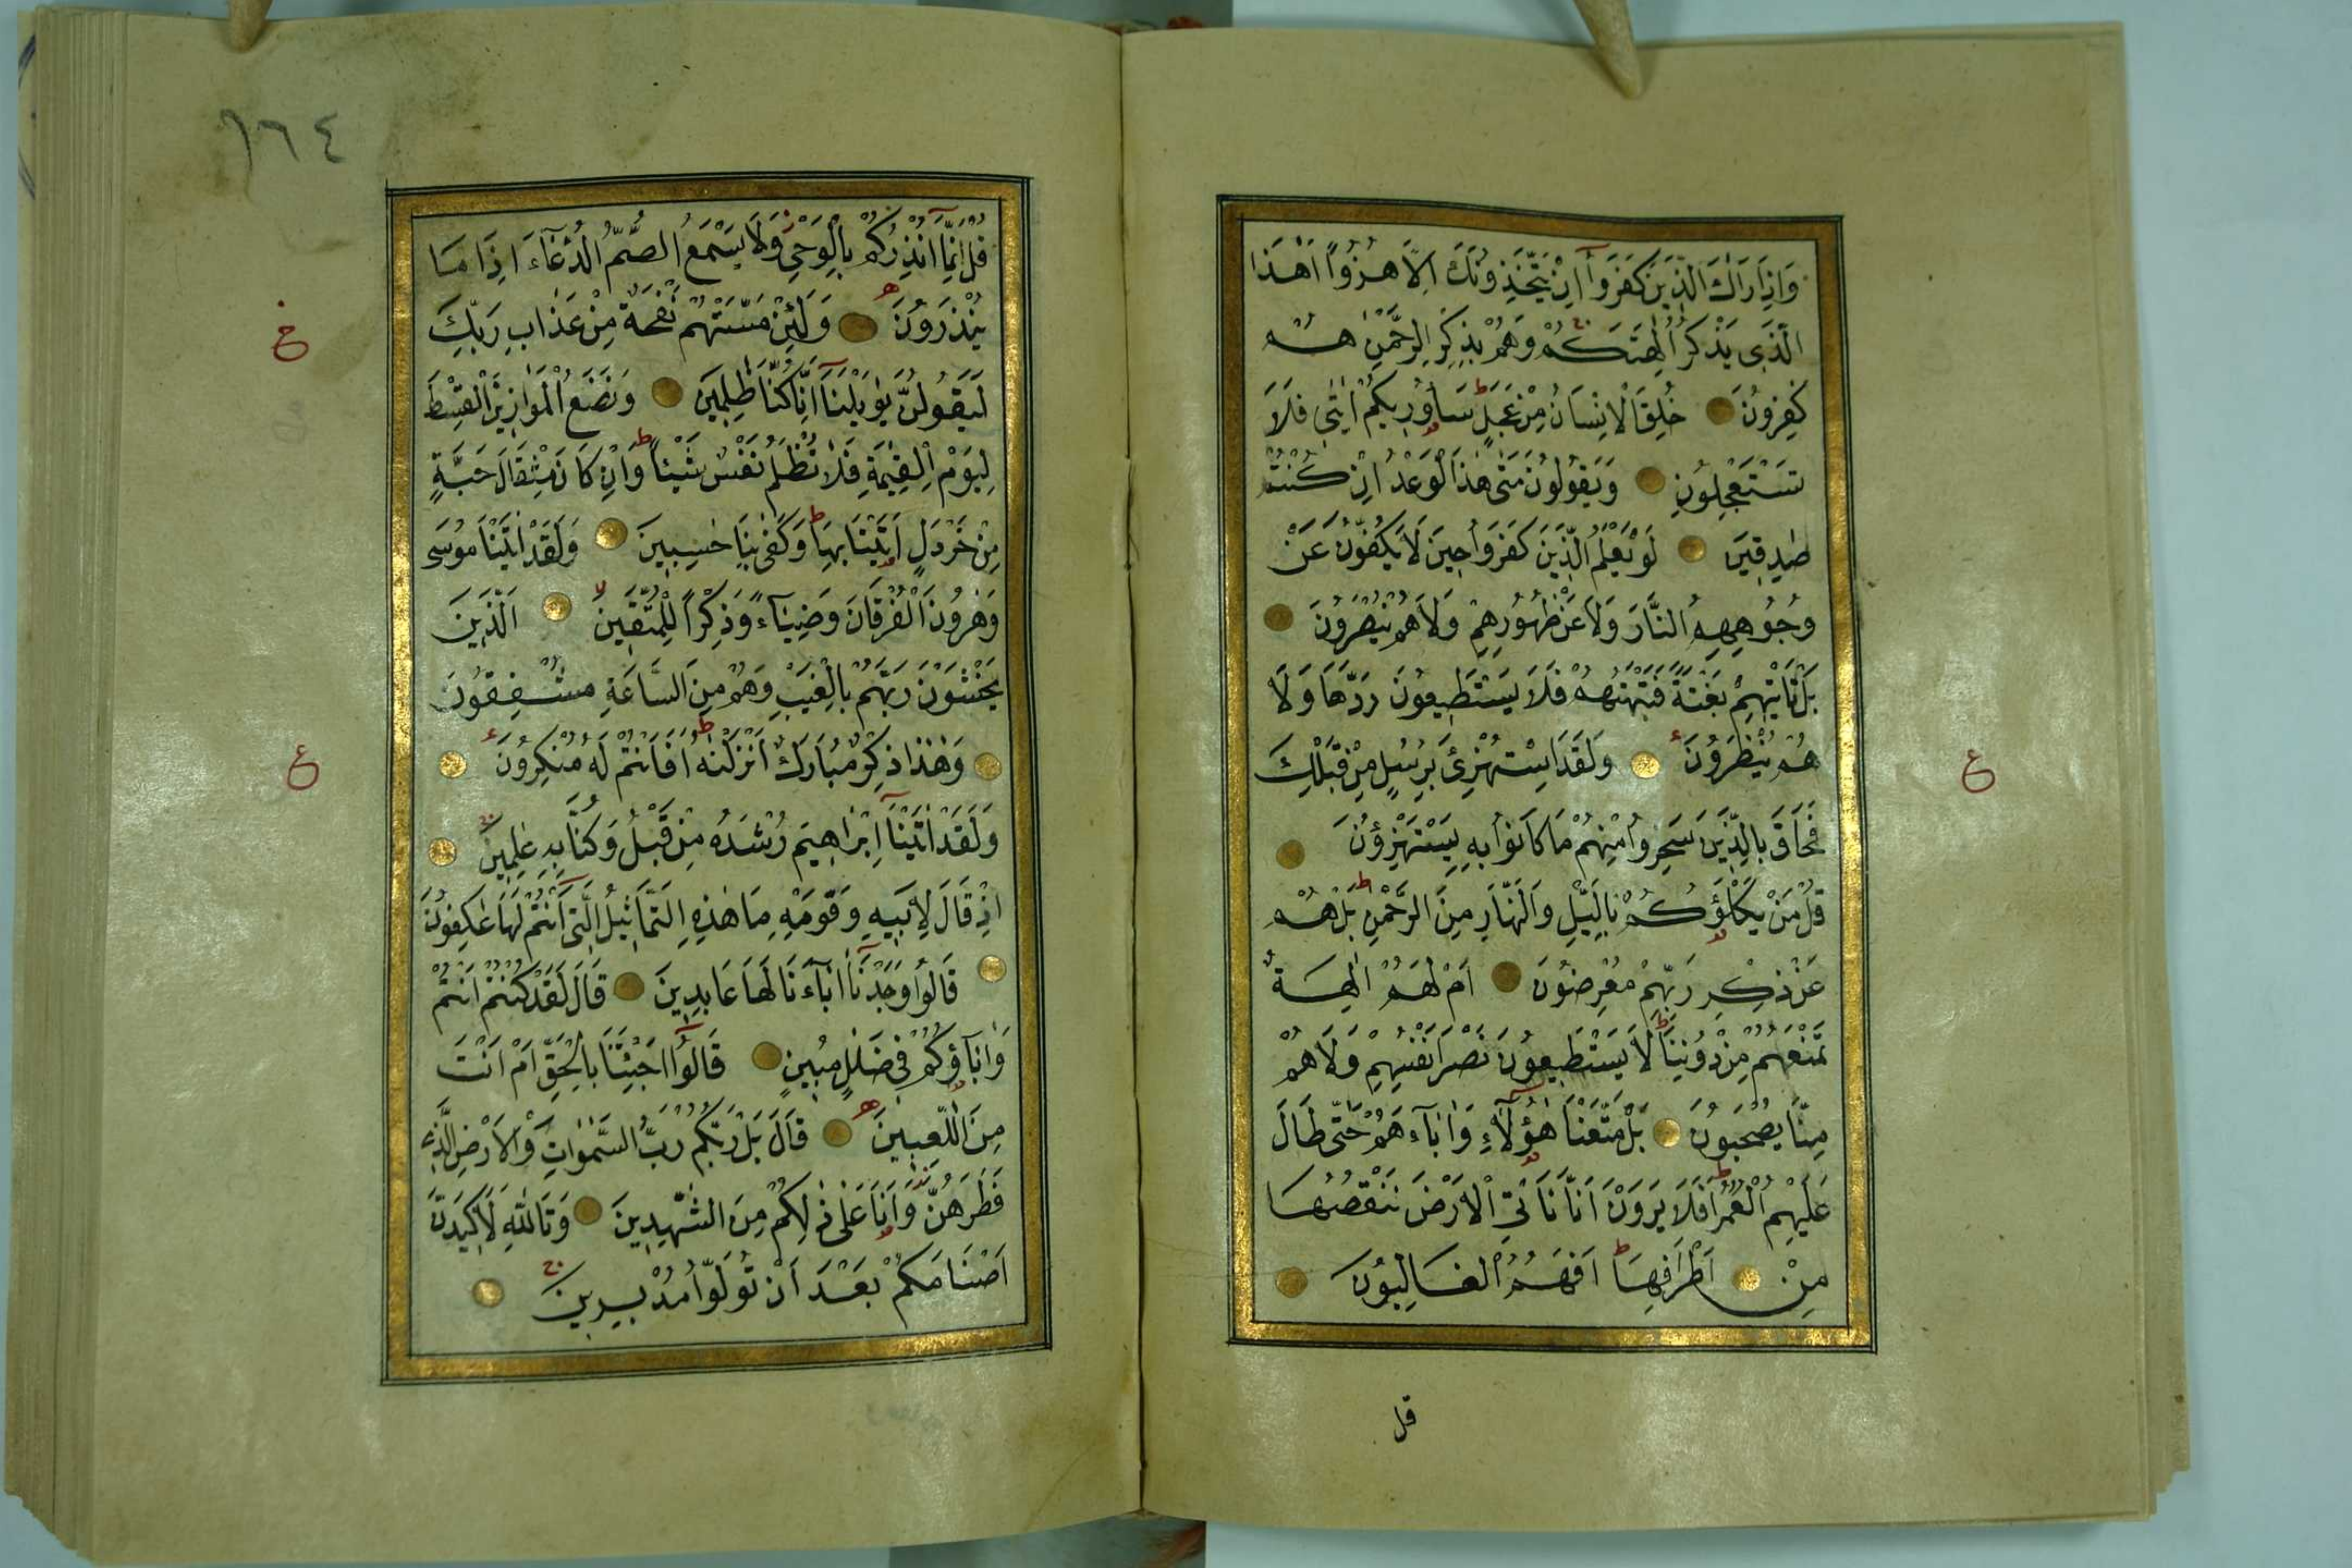 وَاِذَا رَاٰكَ الَّذِينَ كَفَرُوٓا اِنْ يَتَّخِذُونَكَ اِلَّا هُزُوًا اَهٰذَا
الَّذِى يَذْكُرُ اٰلِهَتَكُمْ وَهُمْ بِذِكْرِ الرَّحْمٰنِ هُمْ
كٰفِرُونَ خُلِقَ الْاِنْسَانُ مِنْ عَجَلٍ سَاُورِيكُمْ اٰيٰتِى فَلَا
تَسْتَعْجِلُونِ وَيَقُولُونَ مَتٰى هٰذَا الْوَعْدُ اِنْ كُنْتُمْ
صٰدِقِينَ لَوْ يَعْلَمُ الَّذِينَ كَفَرُوا حِينَ لَا يَكُفُّونَ عَنْ
وُجُوهِهِمُ النَّارَ وَلَا عَنْ ظُهُورِهِمْ وَلَا هُمْ يُنْصَرُونَ
بَلْ تَأْتِيهِمْ بَغْتَةً فَتَبْهَتُهُمْ فَلَا يَسْتَطِيعُونَ رَدَّهَا وَلَا
هُمْ يُنْظَرُونَ وَلَقَدِ اسْتُهْزِئَ بِرُسُلٍ مِنْ قَبْلِكَ
ع
فَحَاقَ بِالَّذِينَ سَخِرُوا مِنْهُمْ مَا كَانُوا بِهِ يَسْتَهْزِؤُنَ
قُلْ مَنْ يَكْلَؤُكُمْ بِالَّيْلِ وَالنَّهَارِ مِنَ الرَّحْمٰنِ بَلْ هُمْ
عَنْ ذِكْرِ رَبِّهِمْ مُعْرِضُونَ اَمْ لَهُمْ اٰلِهَةٌ
تَمْنَعُهُمْ مِنْ دُونِنَا لَا يَسْتَطِيعُونَ نَصْرَ اَنْفُسِهِمْ وَلَا هُمْ
مِنَّا يُصْحَبُونَ بَلْ مَتَّعْنَا هٰٓؤُلَاءِ وَاٰبَآءَهُمْ حَتّٰى طَالَ
عَلَيْهِمُ الْعُمُرُ اَفَلَا يَرَوْنَ اَنَّا نَأْتِى الْاَرْضَ نَنْقُصُهَا
مِنْ اَطْرَافِهَا اَفَهُمُ الْغَالِبُونَ
قل
١٦٤
قُلْ اِنَّمَآ اُنْذِرُكُمْ بِالْوَحْىِ وَلَا يَسْمَعُ الصُّمُّ الدُّعَآءَ اِذَا مَا
يُنْذَرُونَ وَلَئِنْ مَسَّتْهُمْ نَفْحَةٌ مِنْ عَذَابِ رَبِّكَ
لَيَقُولُنَّ يٰوَيْلَنَآ اِنَّا كُنَّا ظٰلِمِينَ وَنَضَعُ الْمَوَازِينَ الْقِسْطَ
لِيَوْمِ الْقِيٰمَةِ فَلَا تُظْلَمُ نَفْسٌ شَيْئًا وَاِنْ كَانَ مِثْقَالَ حَبَّةٍ
مِنْ خَرْدَلٍ اَتَيْنَا بِهَا وَكَفٰى بِنَا حٰسِبِينَ وَلَقَدْ اٰتَيْنَا مُوسٰى
وَهٰرُونَ الْفُرْقَانَ وَضِيَآءً وَذِكْرًا لِلْمُتَّقِينَ اَلَّذِينَ
يَخْشَوْنَ رَبَّهُمْ بِالْغَيْبِ وَهُمْ مِنَ السَّاعَةِ مُشْفِقُونَ
وَهٰذَا ذِكْرٌ مُبَارَكٌ اَنْزَلْنٰهُ اَفَاَنْتُمْ لَهُ مُنْكِرُونَ
ع
وَلَقَدْ اٰتَيْنَآ اِبْرٰاهِيمَ رُشْدَهُ مِنْ قَبْلُ وَكُنَّا بِهِ عٰلِمِينَ
اِذْ قَالَ لِاَبِيهِ وَقَوْمِهِ مَا هٰذِهِ التَّمَاثِيلُ الَّتِى اَنْتُمْ لَهَا عٰكِفُونَ
قَالُوا وَجَدْنَآ اٰبَآءَنَا لَهَا عَابِدِينَ قَالَ لَقَدْ كُنْتُمْ اَنْتُمْ
وَاٰبَآؤُكُمْ فِى ضَلٰلٍ مُبِينٍ قَالُوٓا اَجِئْتَنَا بِالْحَقِّ اَمْ اَنْتَ
مِنَ اللّٰعِبِينَ قَالَ بَلْ رَبُّكُمْ رَبُّ السَّمٰوَاتِ وَالْاَرْضِ الَّذِى
فَطَرَهُنَّ وَاَنَا عَلٰى ذٰلِكُمْ مِنَ الشّٰهِدِينَ وَتَاللّٰهِ لَاَكِيدَنَّ
اَصْنَامَكُمْ بَعْدَ اَنْ تُوَلُّوا مُدْبِرِينَ